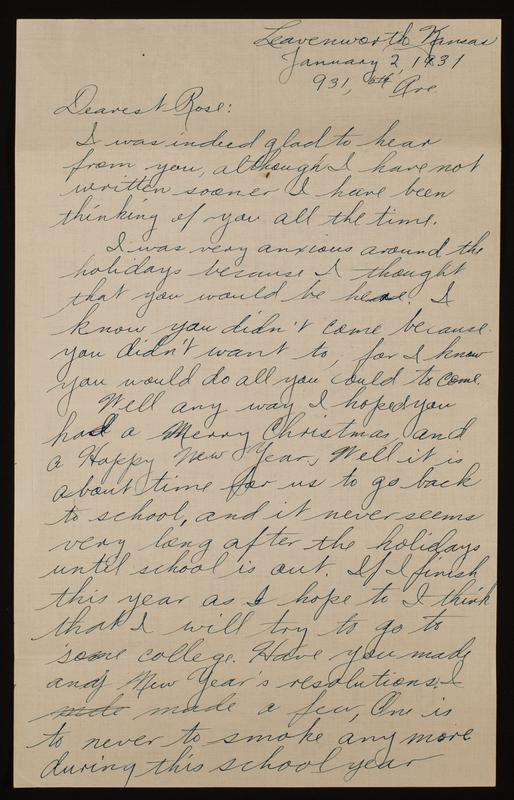 Leavenworth Kansas
January 2, 1931
931, 5th Ave.
Dearest Rose:
I was indeed glad to hear
from you, although I have not
written sooner I have been
thinking of you all the time.
I was very anxious around the
holidays because I thought
that you would be here. I
know you didn't come because
you didn't want to, for I know
you would do all you could to come.
Well any way I hoped you
had a Merry Christmas, and
a Happy New Year, Well it is
about time for us to go back
to school, and it never seems
very long after the holidays
until school is out. If I finish
this year as I hope to I think
that I will try to go to
some college. Have you made
any New Year's resolutions, I
made a few, One is
to never to smoke any more
during this school year